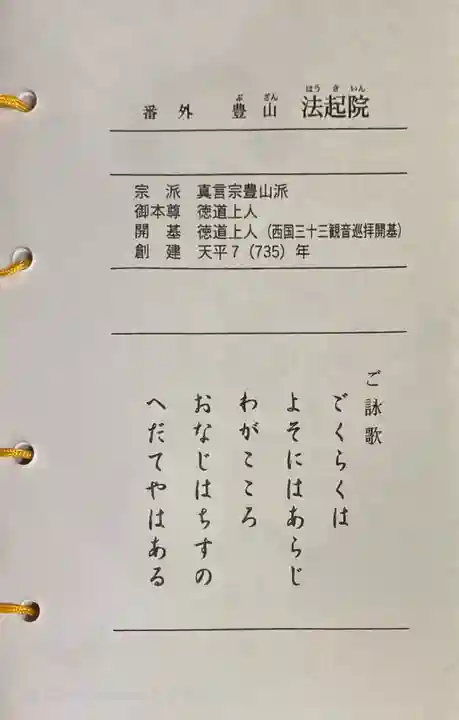 番外 豊山 法起院
ぶ ざん ほう き いん
宗派 真言宗豊山派
御本尊 徳道上人
開基 徳道上人（西国三十三観音巡拝開基）
創建 天平7（735）年
ご詠歌
ごくらくは
よそにはあらじ
わがこころ
おなじはちすの
へだてやはある